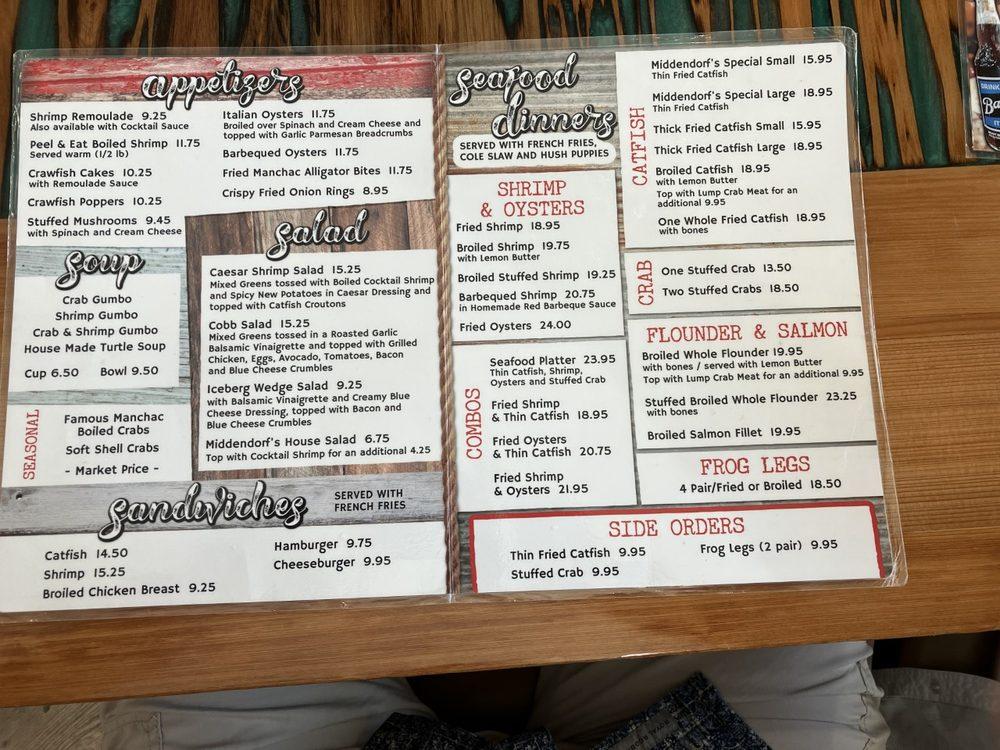 appetizers
Shrimp Remoulade 9.25
Also available with Cocktail Sauce
Peel & Eat Boiled Shrimp 11.75
Served warm (1/2 lb)
Crawfish Cakes 10.25
with Remoulade Sauce
Crawfish Poppers 10.25
Stuffed Mushrooms 9.45
with Spinach and Cream Cheese
Italian Oysters 11.75
Broiled over Spinach and Cream Cheese and
topped with Garlic Parmesan Breadcrumbs
Barbequed Oysters 11.75
Fried Manchac Alligator Bites 11.75
Crispy Fried Onion Rings 8.95
soup
Crab Gumbo
Shrimp Gumbo
Crab & Shrimp Gumbo
House Made Turtle Soup
Cup 6.50 Bowl 9.50
SEASONAL
Famous Manchac
Boiled Crabs
Soft Shell Crabs
- Market Price -
salad
Caesar Shrimp Salad 15.25
Mixed Greens tossed with Boiled Cocktail Shrimp
and Spicy New Potatoes in Caesar Dressing and
topped with Catfish Croutons
Cobb Salad 15.25
Mixed Greens tossed in a Roasted Garlic
Balsamic Vinaigrette and topped with Grilled
Chicken, Eggs, Avocado, Tomatoes, Bacon
and Blue Cheese Crumbles
Iceberg Wedge Salad 9.25
with Balsamic Vinaigrette and Creamy Blue
Cheese Dressing, topped with Bacon and
Blue Cheese Crumbles
Middendorf's House Salad 6.75
Top with Cocktail Shrimp for an additional 4.25
sandwiches
SERVED WITH
FRENCH FRIES
Catfish 14.50
Shrimp 15.25
Broiled Chicken Breast 9.25
Hamburger 9.75
Cheeseburger 9.95
seafood
dinners
SERVED WITH FRENCH FRIES,
COLE SLAW AND HUSH PUPPIES
SHRIMP
& OYSTERS
Fried Shrimp 18.95
Broiled Shrimp 19.75
with Lemon Butter
Broiled Stuffed Shrimp 19.25
Barbequed Shrimp 20.75
in Homemade Red Barbeque Sauce
Fried Oysters 24.00
COMBOS
Seafood Platter 23.95
Thin Catfish, Shrimp,
Oysters and Stuffed Crab
Fried Shrimp
& Thin Catfish 18.95
Fried Oysters
& Thin Catfish 20.75
Fried Shrimp
& Oysters 21.95
CATFISH
Middendorf's Special Small 15.95
Thin Fried Catfish
Middendorf's Special Large 18.95
Thin Fried Catfish
Thick Fried Catfish Small 15.95
Thick Fried Catfish Large 18.95
Broiled Catfish 18.95
with Lemon Butter
Top with Lump Crab Meat for an
additional 9.95
One Whole Fried Catfish 18.95
with bones
CRAB
One Stuffed Crab 13.50
Two Stuffed Crabs 18.50
FLOUNDER & SALMON
Broiled Whole Flounder 19.95
with bones / served with Lemon Butter
Top with Lump Crab Meat for an additional 9.95
Stuffed Broiled Whole Flounder 23.25
with bones
Broiled Salmon Fillet 19.95
FROG LEGS
4 Pair/Fried or Broiled 18.50
SIDE ORDERS
Thin Fried Catfish 9.95
Stuffed Crab 9.95
Frog Legs (2 pair) 9.95
DRINK